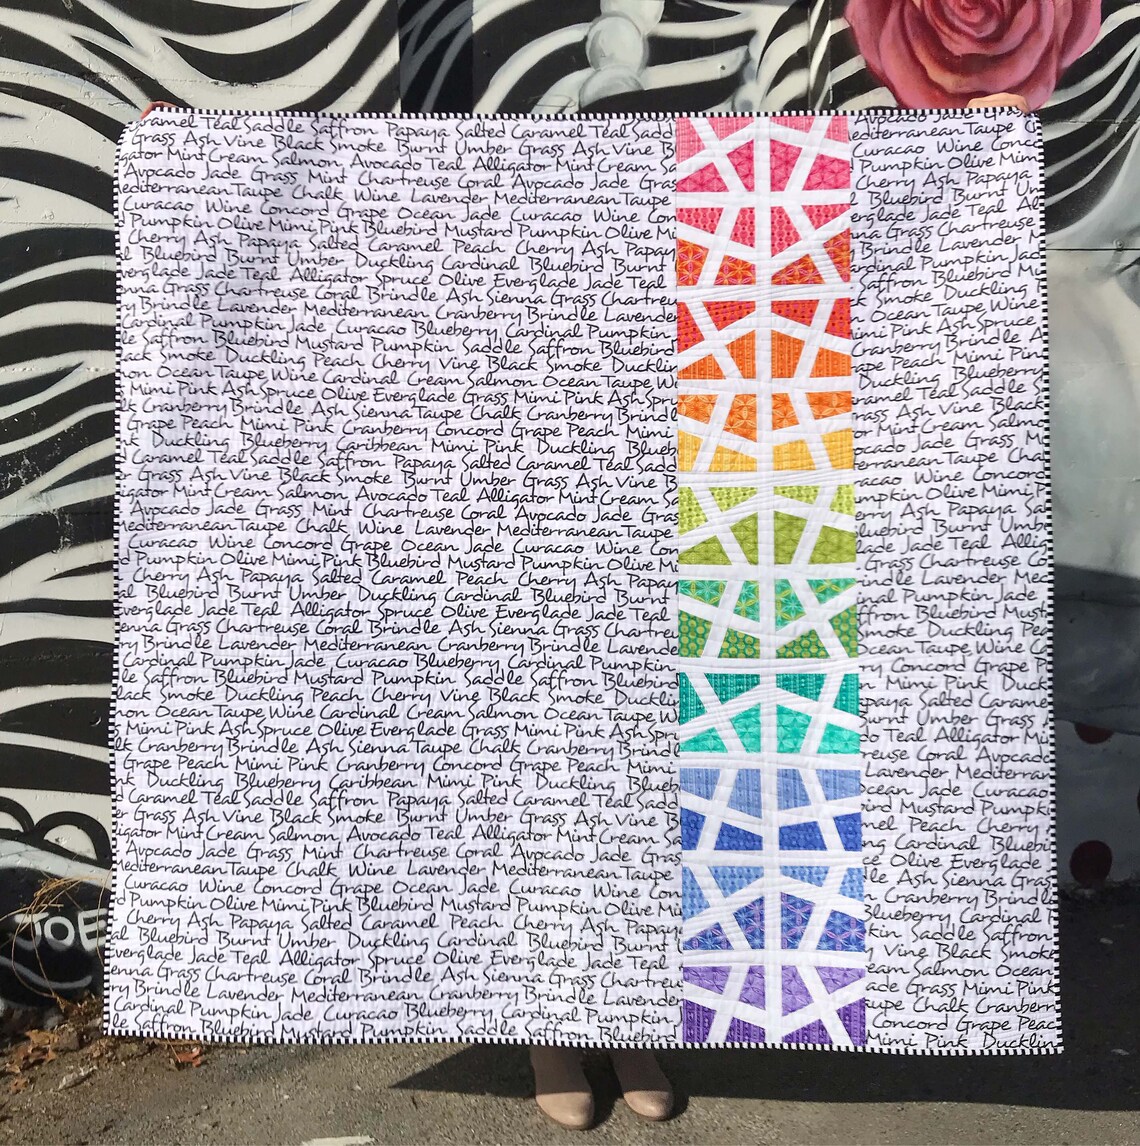 aramel Teal Saddle Saffron Papaya Salted Caramel Teal Sadd
Grass Ash Vine Black Smoke Burnt Umber Grass Ash Vine B
igator Mint Cream Salmon Avocado Teal Alligator Mint Cream Sa
Avocado Jade Grass Mint Chartreuse Coral Avocado Jade Gras
editerranean Taupe Chalk Wine Lavender Mediterranean Taupe
Curacao Wine Concord Grape Ocean Jade Curacao Wine Con
d Pumpkin Olive Mimi Pink Bluebird Mustard Pumpkin Olive Mi
Cherry Ash Papaya Salted Caramel Peach Cherry Ash Papay
l Bluebird Burnt Umber Duckling Cardinal Bluebird Burnt
verglade Jade Teal Alligator Spruce Olive Everglade Jade Teal
enna Grass Chartreuse Coral Brindle Ash Sienna Grass Chartreu
y Brindle Lavender Mediterranean Cranberry Brindle Lavender
Cardinal Pumpkin Jade Curacao Blueberry Cardinal Pumpkin
le Saffron Bluebird Mustard Pumpkin Saddle Saffron Bluebird
ack Smoke Duckling Peach Cherry Vine Black Smoke Ducklin
on Ocean Taupe Wine Cardinal Cream Salmon Ocean Taupe W
Mimi Pink Ash Spruce Olive Everglade Grass Mimi Pink Ash Spr
lk Cranberry Brindle Ash Sienna Taupe Chalk Cranberry Brindl
Grape Peach Mimi Pink Cranberry Concord Grape Peach Mimi
nk Duckling Blueberry Caribbean Mimi Pink Duckling Blueb
Caramel Teal Saddle Saffron Papaya Salted Caramel Teal Sadd
Grass Ash Vine Black Smoke Burnt Umber Grass Ash Vine B
igator Mint Cream Salmon Avocado Teal Alligator Mint Cream Sa
Avocado Jade Grass Mint Chartreuse Coral Avocado Jade Gras
Mediterranean Taupe Chalk Wine Lavender Mediterranean Taupe
Curacao Wine Concord Grape Ocean Jade Curacao Wine Con
Pumpkin Olive Mimi Pink Bluebird Mustard Pumpkin Olive Mi
Cherry Ash Papaya Salted Caramel Peach Cherry Ash Papay
al Bluebird Burnt Umber Duckling Cardinal Bluebird Burnt
Everglade Jade Teal Alligator Spruce Olive Everglade Jade Teal
enna Grass Chartreuse Coral Brindle Ash Sienna Grass Chartreu
ry Brindle Lavender Mediterranean Cranberry Brindle Lavende
Cardinal Pumpkin Jade Curacao Blueberry Cardinal Pumpkin
le Saffron Bluebird Mustard Pumpkin Saddle Saffron Bluebird
lack Smoke Duckling Peach Cherry Vine Black Smoke Ducklin
on Ocean Taupe Wine Cardinal Cream Salmon Ocean Taupe W
Mimi Pink Ash Spruce Olive Everglade Grass Mimi Pink Ash Spr
lk Cranberry Brindle Ash Sienna Taupe Chalk Cranberry Brindl
Grape Peach Mimi Pink Cranberry Concord Grape Peach Mimi
nk Duckling Blueberry Caribbean Mimi Pink Duckling Blueb
Caramel Teal Saddle Saffron Papaya Salted Caramel Teal Sadd
Grass Ash Vine Black Smoke Burnt Umber Grass Ash Vine B
igator Mint Cream Salmon Avocado Teal Alligator Mint Cream Sa
Avocado Jade Grass Mint Chartreuse Coral Avocado Jade Gras
Mediterranean Taupe Chalk Wine Lavender Mediterranean Taupe
Curacao Wine Concord Grape Ocean Jade Curacao Wine Con
d Pumpkin Olive Mimi Pink Bluebird Mustard Pumpkin Olive Mi
Cherry Ash Papaya Salted Caramel Peach Cherry Ash Papay
al Bluebird Burnt Umber Duckling Cardinal Bluebird Burnt
verglade Jade Teal Alligator Spruce Olive Everglade Jade Teal
enna Grass Chartreuse Coral Brindle Ash Sienna Grass Chartreu
ry Brindle Lavender Mediterranean Cranberry Brindle Lavender
Cardinal Pumpkin Jade Curacao Blueberry Cardinal Pumpkin
le Saffron Bluebird Mustard Pumpkin Saddle Saffron Bluebird
Avocado Jade
editerranean Taupe
Curacao Wine Conco
Pumpkin Olive Mim
Cherry Ash Papaya
Bluebird Burnt Um
verglade Jade Teal Al
nna Grass Chartreuse
Brindle Lavender Me
ardinal Pumpkin Jad
affron Bluebird Mu
ck Smoke Duckling
Ocean Taupe Wine
imi Pink Ash Spruce
Cranberry Brindle A
rape Peach Mimi Pin
Duckling Blueberry
aramel Teal Saddle S
rass Ash Vine Black
or Mint Cream Salmo
ocado Jade Grass M
terranean Taupe Cha
racao Wine Concor
umpkin Olive Mimi P
erry Ash Papaya Sa
luebird Burnt Umb
lade Jade Teal Allig
Grass Chartreuse Co
indle Lavender Med
inal Pumpkin Jade
ffron Bluebird Must
Smoke Duckling Pea
Ocean Taupe Wine C
y Concord Grape P
n Mimi Pink Duck
apaya Salted Carame
urnt Umber Grass
do Teal Alligator Mi
reuse Coral Avocado
Lavender Mediterran
Ocean Jade Curacao
bird Mustard Pumpki
mel Peach Cherry
ng Cardinal Bluebi
ce Olive Everglade
le Ash Sienna Gras
n Cranberry Brindle
Blueberry Cardinal P
kin Saddle Saffron
y Vine Black Smoke
eam Salmon Ocean
ade Grass Mimi Pink
upe Chalk Cranberr
Concord Grape Peac
Mimi Pink Ducklin
JOE